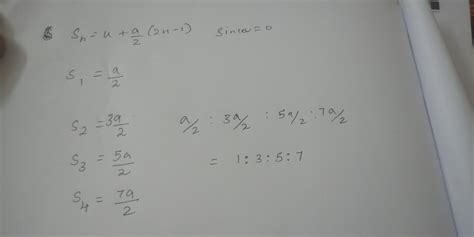 Sₙ = u + a/2 (2n-1) Since u=0
S₁ = a/2
S₂ = 3a/2 a/2 : 3a/2 : 5a/2 : 7a/2
S₃ = 5a/2 = 1:3:5:7
S₄ = 7a/2